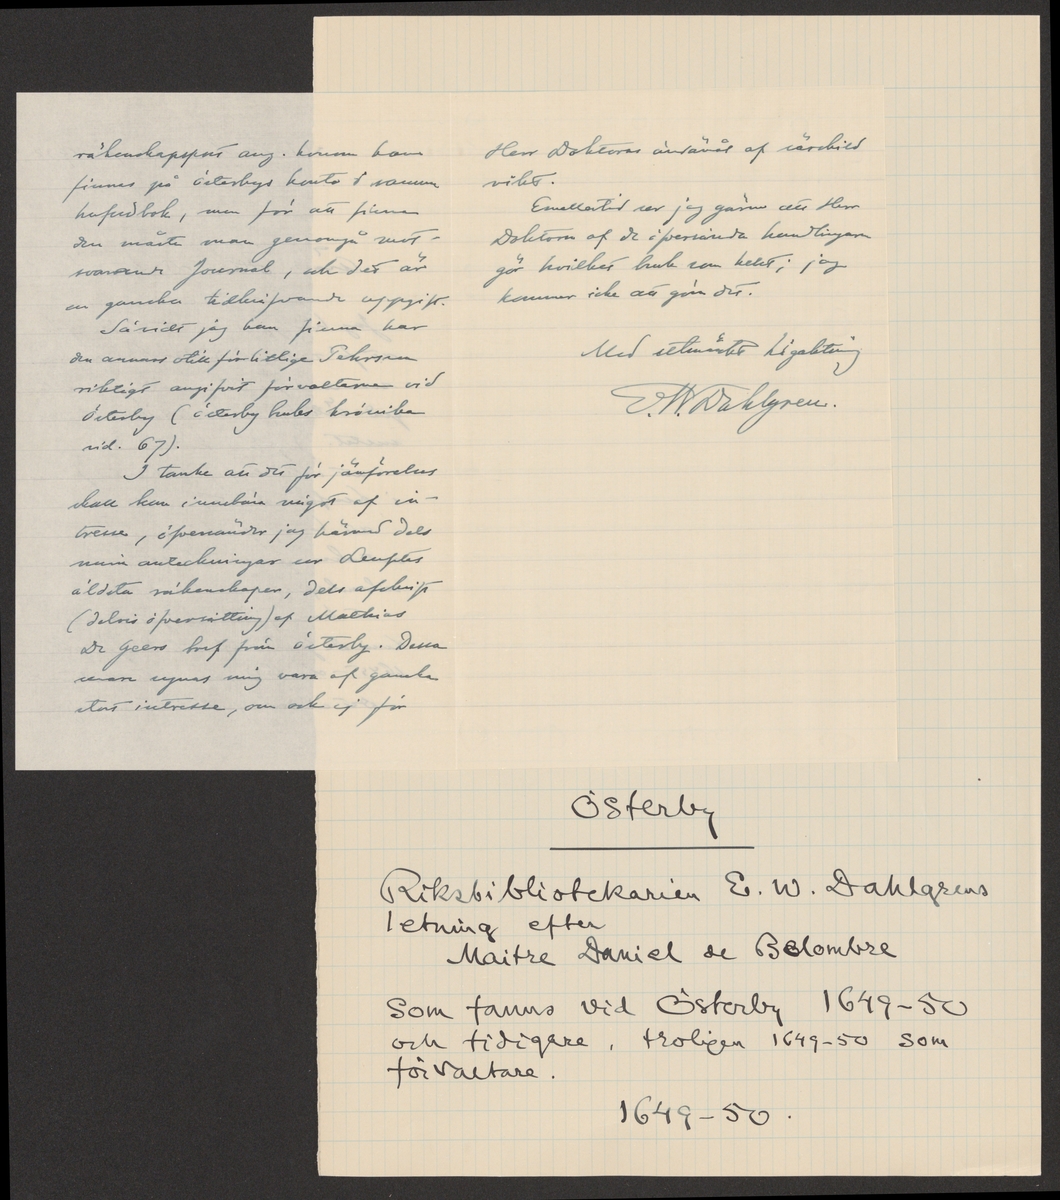 räkenskapspost ang. honom kan
finnes på Österbys konto i samma
hufudbok, men för att finna
den måste man genomgå mot-
svarande Journal, och det är
en ganska tidkräfvande uppgift.
Såvidt jag kan finna har
den annars otillförlitlige Pehrson
riktigt angifvit förvaltarne vid
Österby (Österby bruks krönika
sid. 67).
I tanke att det för jämförelses
skull kan innebära något af in-
tresse, öfversänder jag härmed dels
mina anteckningar ur Leufstas
äldsta räkenskaper, dels afskrift
(delvis öfversättning) af Mathias
De Geers bref från Österby. Dessa
senare synas mig vara af ganska
stort intresse, om och ej för
Herr Doktorns ändamål af särskild
vikt.
Emellertid ser jag gärna att Herr
Doktorn af de öfversända handlingarna
gör hvilket bruk som helst; jag
kommer icke att göra det.
Med utmärkt högaktning
E.W. Dahlgren.
Österby
Riksbibliotekarien E. W. Dahlgrens
letning efter
Maitre Daniel de Belombre
som fanns vid Österby 1649-50
och tidigare, troligen 1649-50 som
förvaltare.
1649-50.